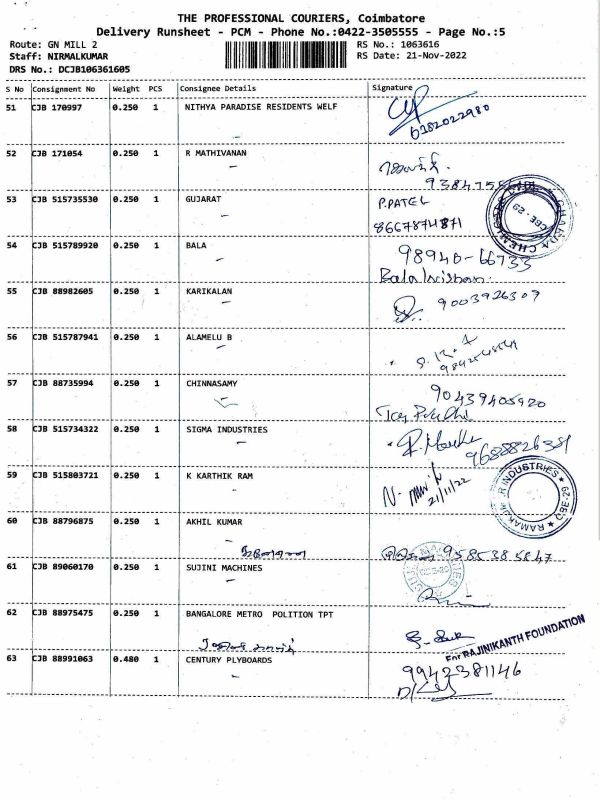 THE PROFESSIONAL COURIERS, Coimbatore
Delivery Runsheet - PCM - Phone No.:0422-3505555 - Page No.:5
Route: GN MILL 2 RS No.: 1063616
Staff: NIRMALKUMAR RS Date: 21-Nov-2022
DRS No.: DCJB106361605
S No Consignment No Weight PCS Consignee Details Signature
51 CJB 170997 0.250 1 NITHYA PARADISE RESIDENTS WELF
6382022980
52 CJB 171054 0.250 1 R MATHIVANAN
53 CJB 515735530 0.250 1 GUJARAT P.PATEL
8667874871
54 CJB 515789920 0.250 1 BALA 98940-66733
Balakrishnan.
55 CJB 88982605 0.250 1 KARIKALAN 9003926309
56 CJB 515787941 0.250 1 ALAMELU B
57 CJB 88735994 0.250 1 CHINNASAMY 90439405920
58 CJB 515734322 0.250 1 SIGMA INDUSTRIES
9688826381
59 CJB 515803721 0.250 1 K KARTHIK RAM
21/11/22
INDUSTRIES
CBE-29
60 CJB 88796875 0.250 1 AKHIL KUMAR
9585385847
61 CJB 89060170 0.250 1 SUJINI MACHINES
62 CJB 88975475 0.250 1 BANGALORE METRO POLITION TPT
For RAJINIKANTH FOUNDATION
63 CJB 88991063 0.480 1 CENTURY PLYBOARDS 9942381146